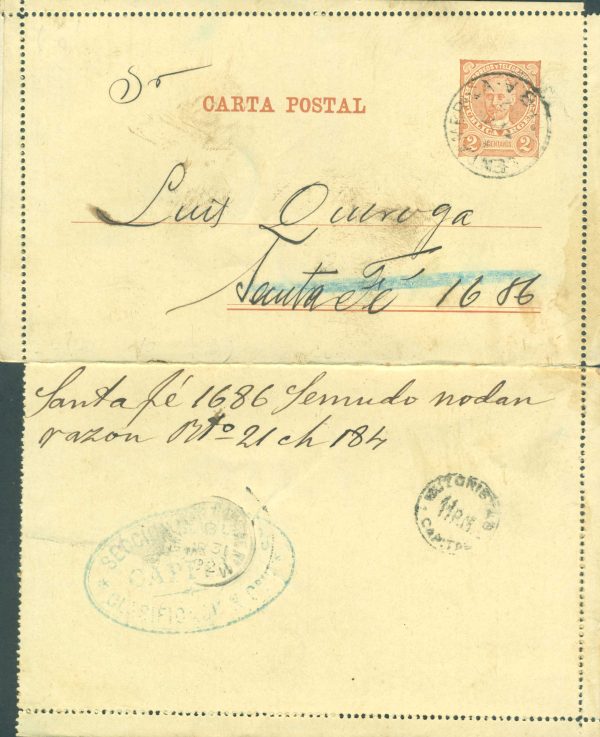 Sr
CARTA POSTAL
2 CENTAVOS 2
Luis Quiroga
Santa Fé 1686
Santa fé 1686 Semudo nodan
razon Rto 21 ch 184
SECCION
CAPITAL